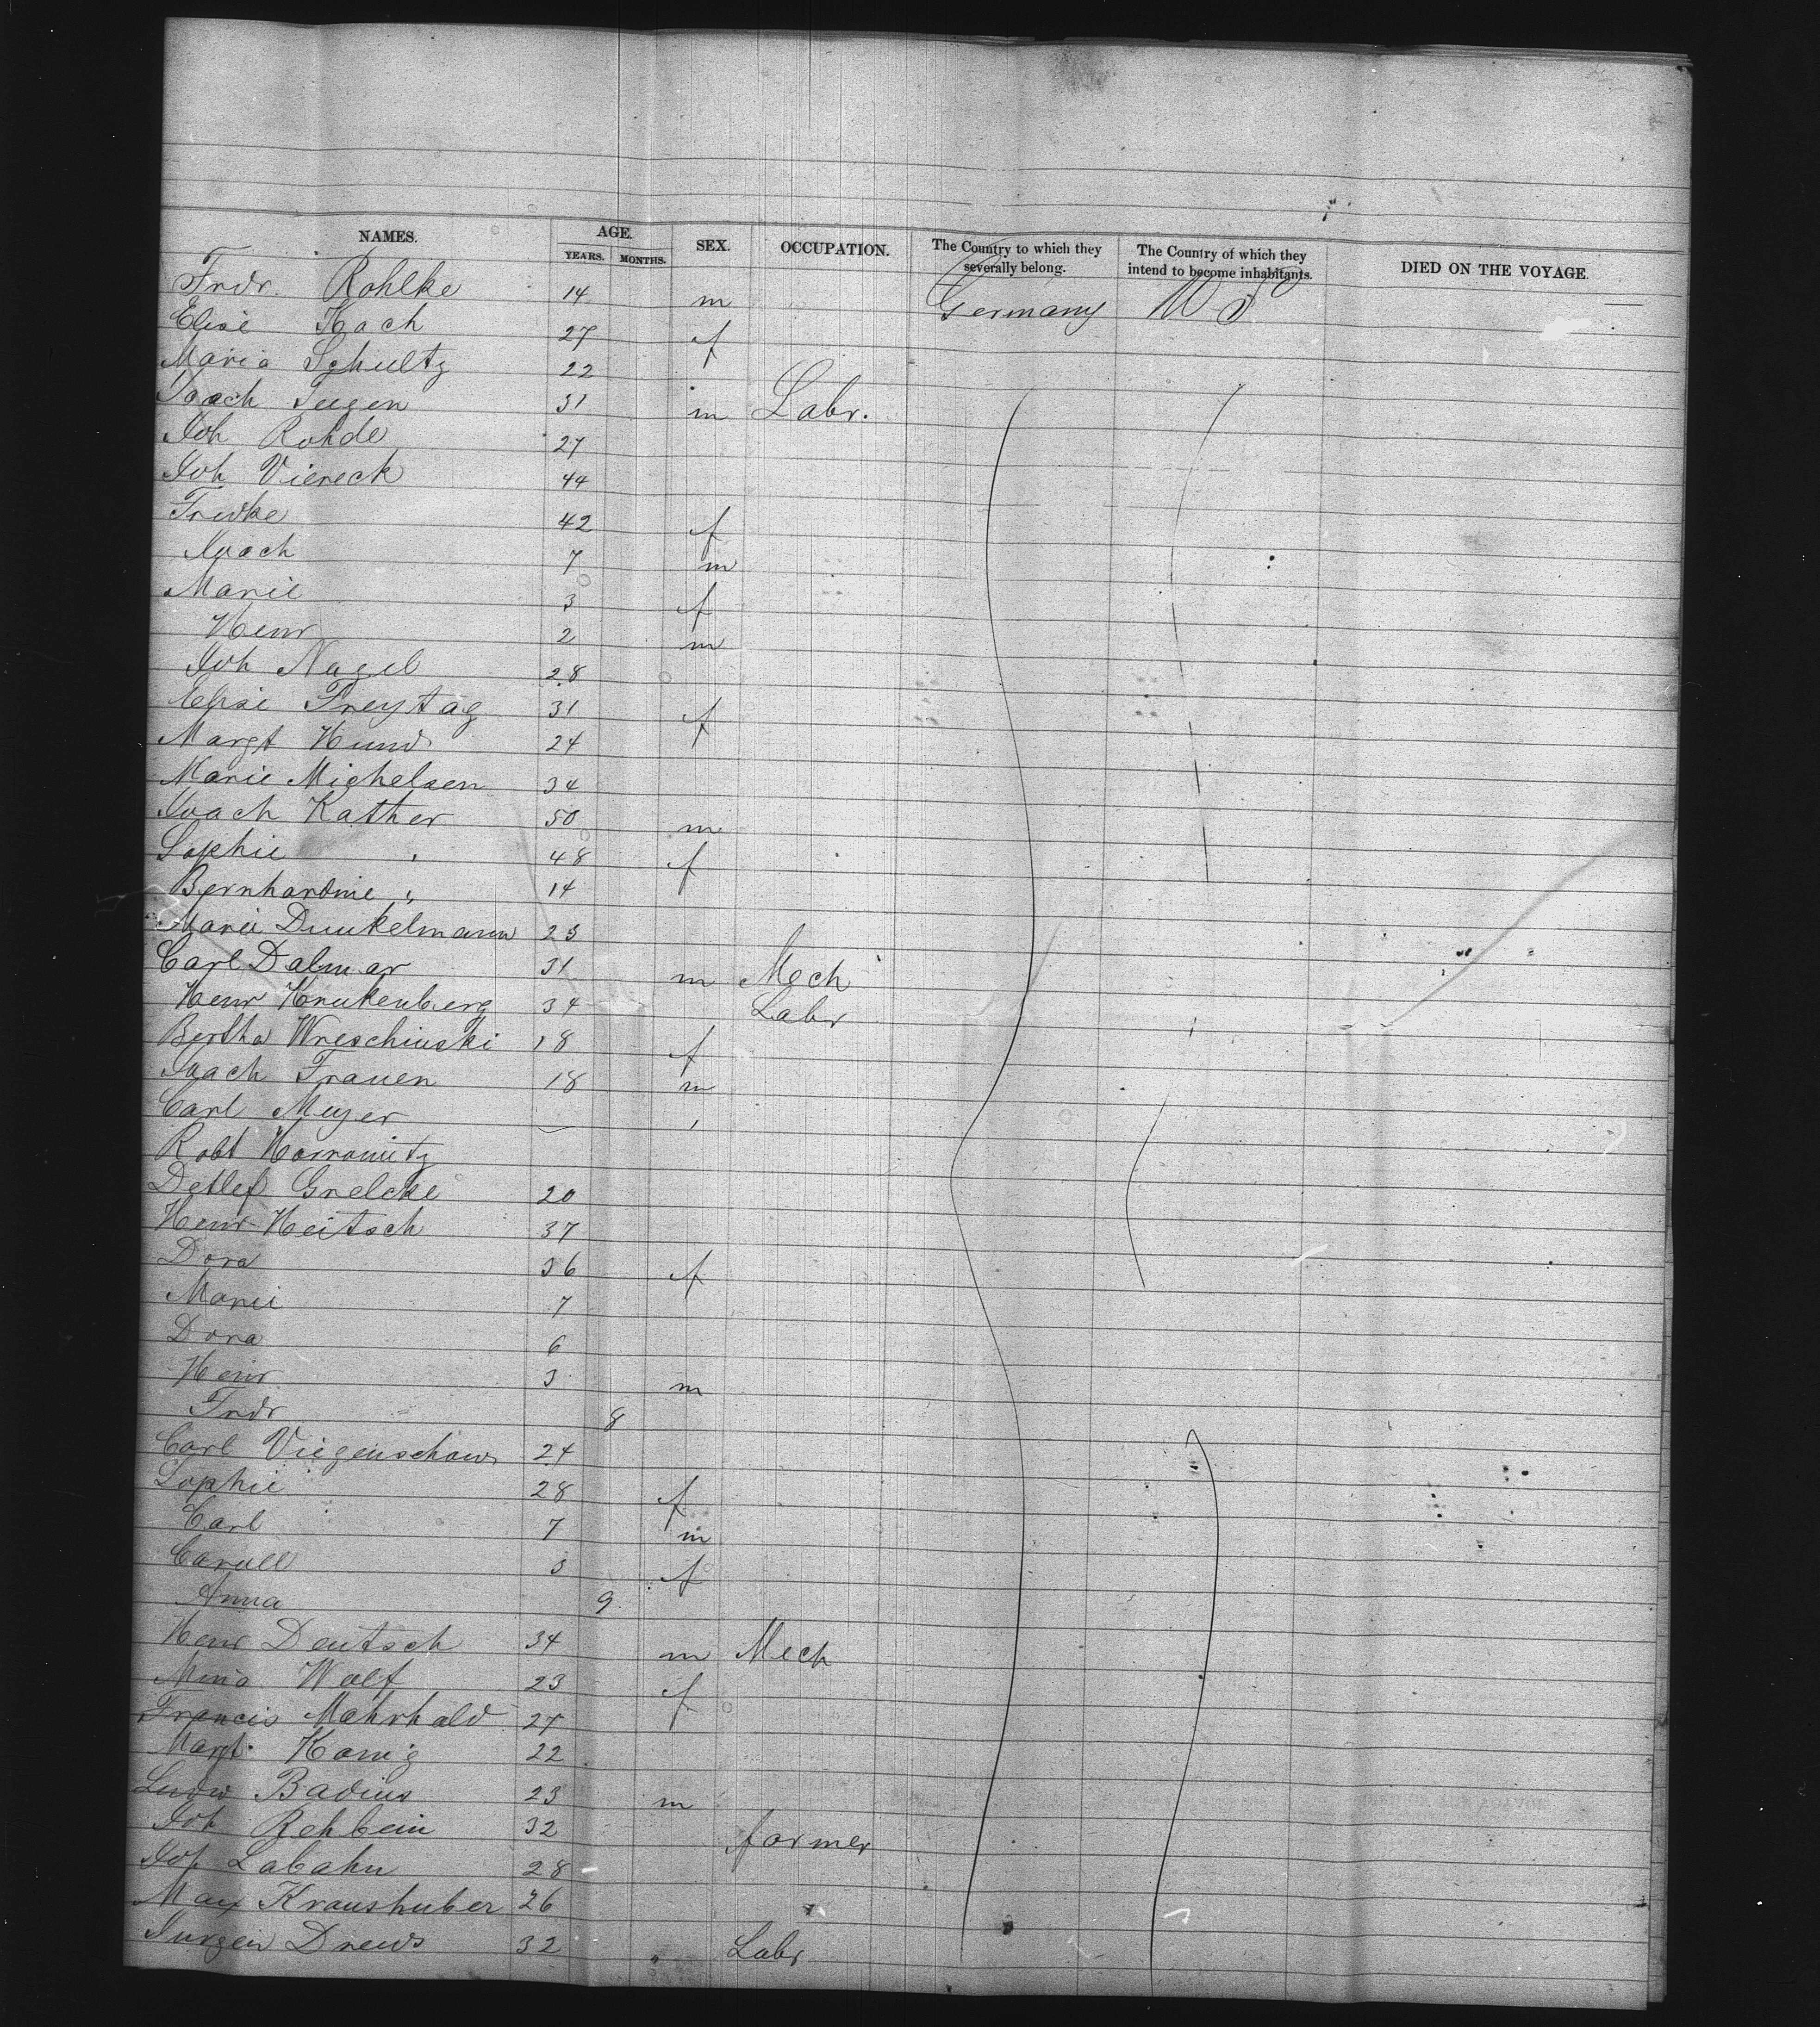 NAMES. AGE. YEARS. MONTHS. SEX. OCCUPATION. The Country to which they severally belong. The Country of which they intend to become inhabitants. DIED ON THE VOYAGE.
Frdr. Rohlke 14 m Germany U S
Elise Koch 27 f
Maria Schultz 22
Joach Teegen 31 m Labr.
Joh Rohde 27
Joh Viereck 44
Fredke 42 f
Joach 7 m
Marie 3 f
Henr 2 m
Joh Nagel 28
Elise Freytag 31 f
Margt Hund 24
Marie Michelsen 34
Joach Kather 50 m
Sophie " 48 f
Bernhardine " 14
Marie Dunkelmann 23
Carl Dalmar 31 m Mech
Henr Krukenberg 34 Labr
Bertha Wreschinski 18 f
Joach Frauen 18 m
Carl Meyer
Robt Horrowitz
Detlef Grelcke 20
Henr Heitsch 37
Dora 36 f
Marie 7
Dora 6
Henr 3 m
Frdr 8
Carl Viegenschow 24
Sophie 28 f
Carl 7 m
Caroll 3 f
Anna 9
Henr Deutsch 34 m Mech
Mina Wolf 23 f
Francis Mahrhald 27
Margt. Konig 22
Ludw Badius 23 m
Joh Rehbein 32 farmer
Jos Labahn 28
Max Kraushuber 26
Jurgen Drews 32 " Labr